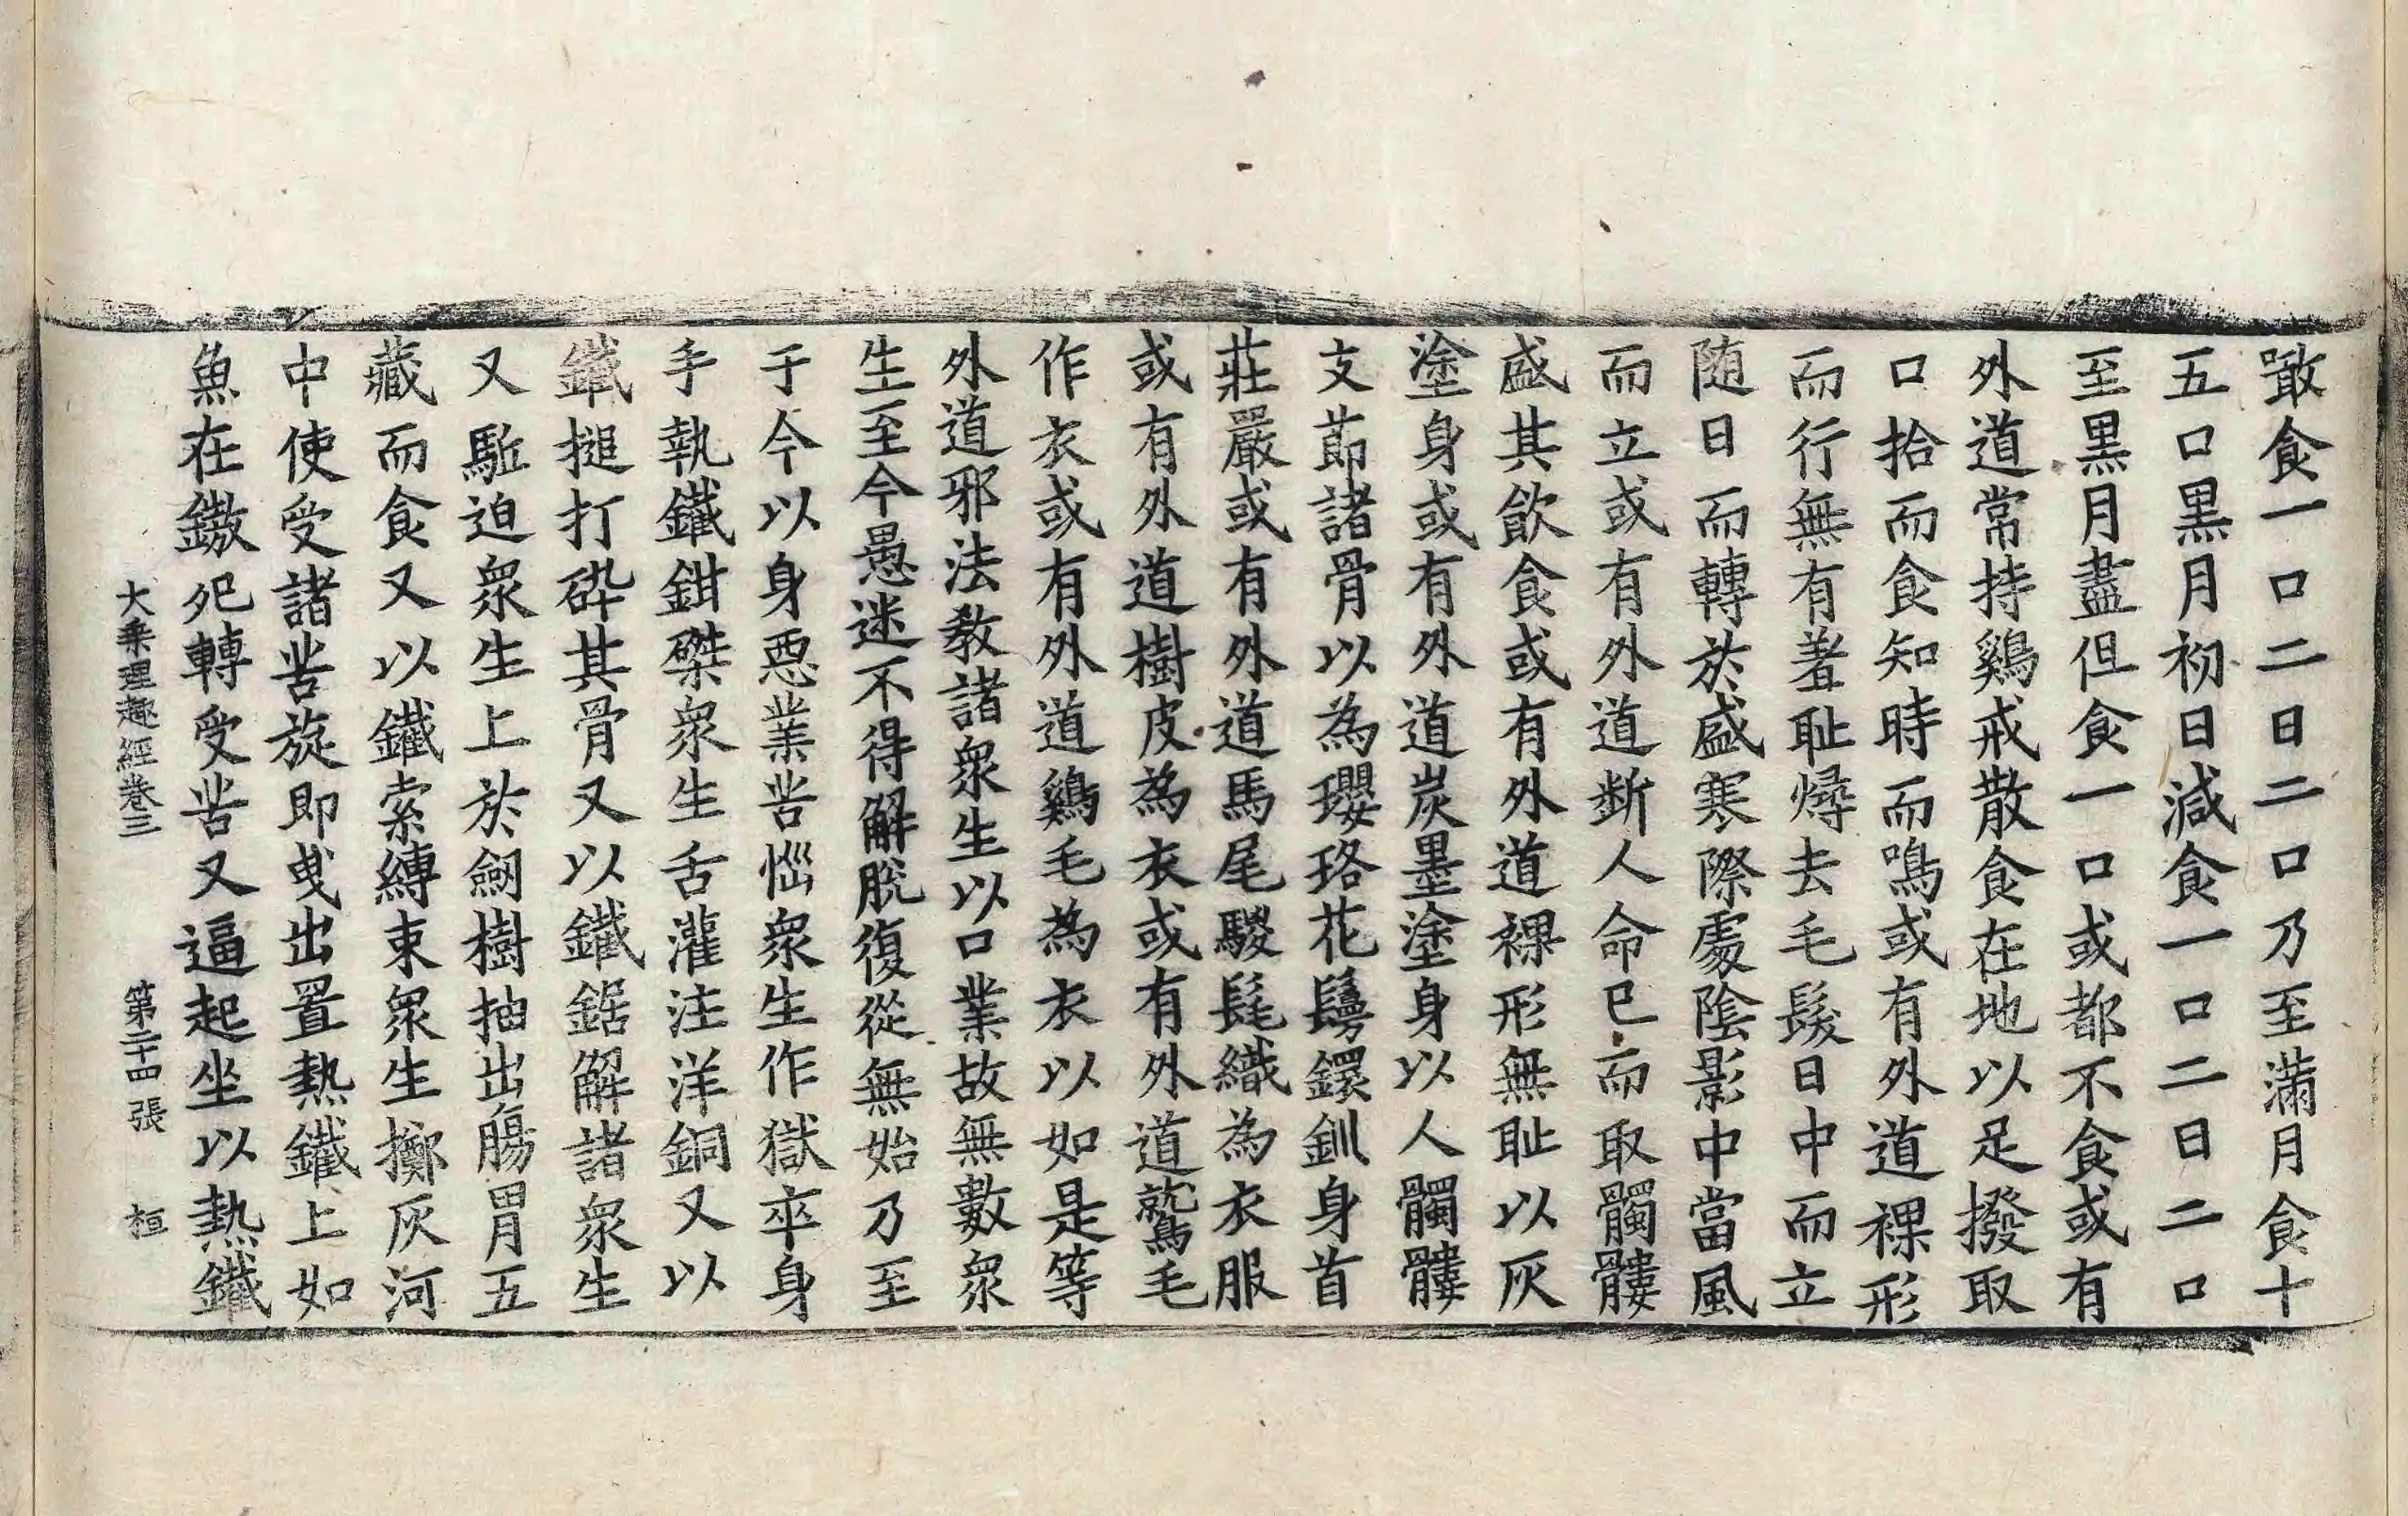 噉食一口二日二口乃至滿月食十
五口黑月初日減食一口二日二口
至黑月盡但食一口或都不食或有
外道常持鷄戒散食在地以足撥取
口拾而食知時而鳴或有外道裸形
而行無有羞恥燖去毛髮日中而立
随日而轉於盛寒際處陰影中當風
而立或有外道斷人命已而取髑髏
盛其飲食或有外道裸形無恥以灰
塗身或有外道炭墨塗身以人髑髏
支節諸骨以為瓔珞花鬘鐶釧身首
莊嚴或有外道馬尾騣髦織為衣服
或有外道樹皮為衣或有外道鷲毛
作衣或有外道鷄毛為衣以如是等
外道邪法教諸眾生以口業故無數眾
生至今愚迷不得解脫復從無始乃至
于今以身惡業苦惱眾生作獄卒身
手執鐵鉗磔眾生舌灌注洋銅又以
鐵搥打碎其骨又以鐵鋸解諸眾生
又駈迫眾生上於劒樹抽出腸胃五
藏而食又以鐵索縛束眾生擲灰河
中使受諸苦旋即曳出置熱鐵上如
魚在鏊宛轉受苦又逼起坐以熱鐵
大乘理趣經卷三 第二十四張 桓